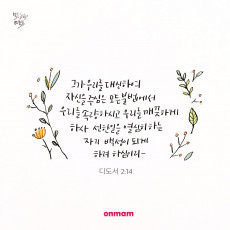 그가 우리를 대신하여
자신을 주심은 모든 불법에서
우리를 속량하시고 우리를 깨끗하게
하사 선한일을 열심히하는
자기 백성이 되게
하려 하심이라-
디도서 2:14
onmam